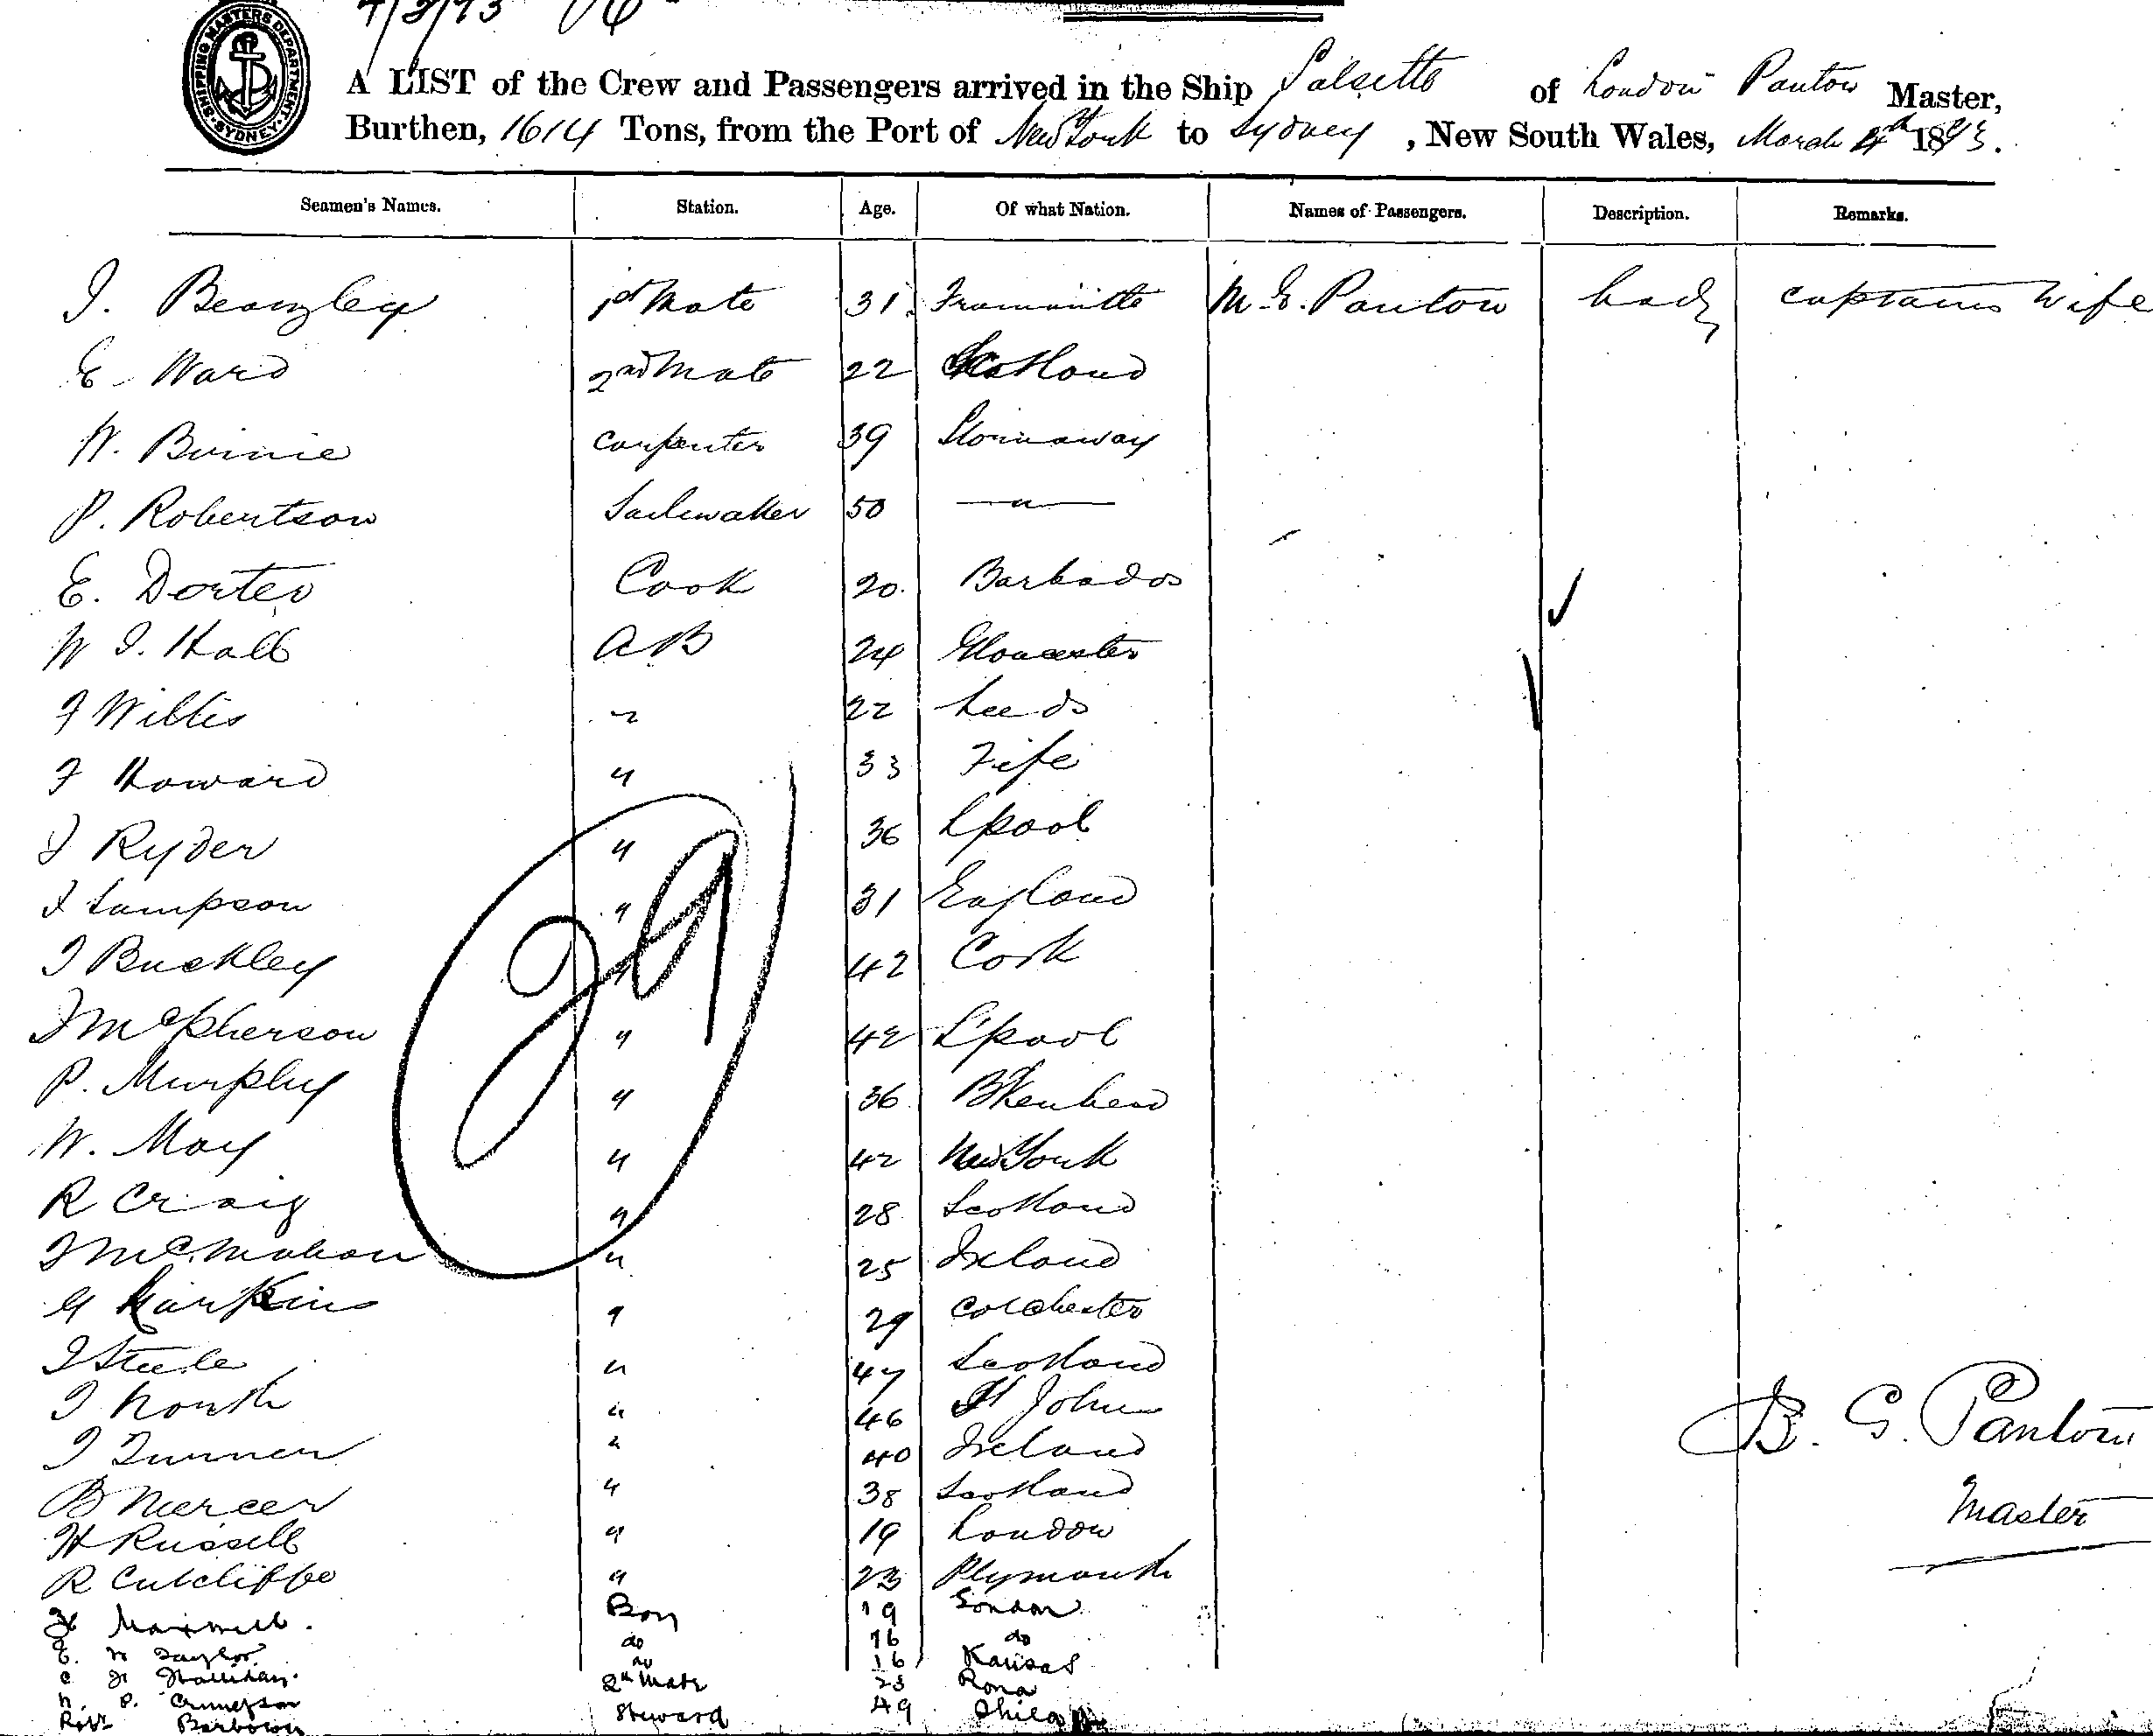 4/3/93
SHIPPING MASTERS DEPARTMENT SYDNEY
A LIST of the Crew and Passengers arrived in the Ship Salsette of London Panton Master,
Burthen, 1614 Tons, from the Port of New York to Sydney, New South Wales, March 4th 1893.
Seamen's Names. Station. Age. Of what Nation. Names of Passengers. Description. Remarks.
J. Beazley 1st Mate 31 M. E. Panton Lady Captains Wife
E. Ward 2nd Mate 22 Scotland
W. Binnie Carpenter 39 Stornaway
P. Robertson Sailmaker 50 — " —
E. Cook 20 Barbados
W J. Hall AB 24 Gloucester
J Willis " 22 Leeds
F Howard " 33 Fife
J Ryder " 36 Lpool
J Sampson " 31 England
J Buckley " 42 Cork
J McPherson " 42 L'pool
P. Murphy " 36 B'Kenhead
W. May " 42 New York
R Craig " 28 Scotland
J McMahon " 25 Ireland
G Harkins " 29 Colchester
J Steele " 47 Scotland
J North " 46 St John
J Turner " 40 Ireland
B Mercer " 38 Scotland
H Russell " 19 London
R Cutcliffe " 23 Plymouth
H Maxwell Boy 19 London
E. W Taylor do 16 do
C H Halliday do 16 Kansas
N. P. 2nd Mate 23 Rona
Robt Steward 49 Phila
29
B. G. Panton
Master